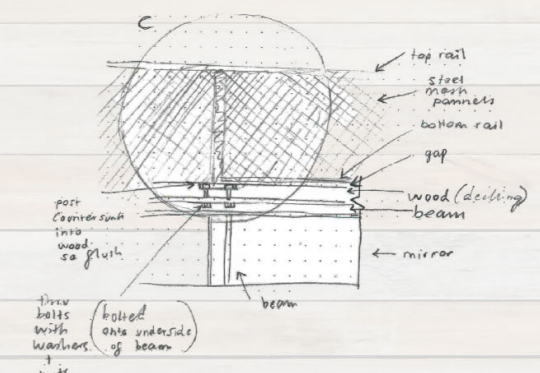 C
top rail
steel
mesh
pannels
bottom rail
gap
wood (decking)
beam
mirror
post
countersunk
into
wood
so flush
beam
thru
bolts
with
washers
+
(bolted
onto underside
of beam)